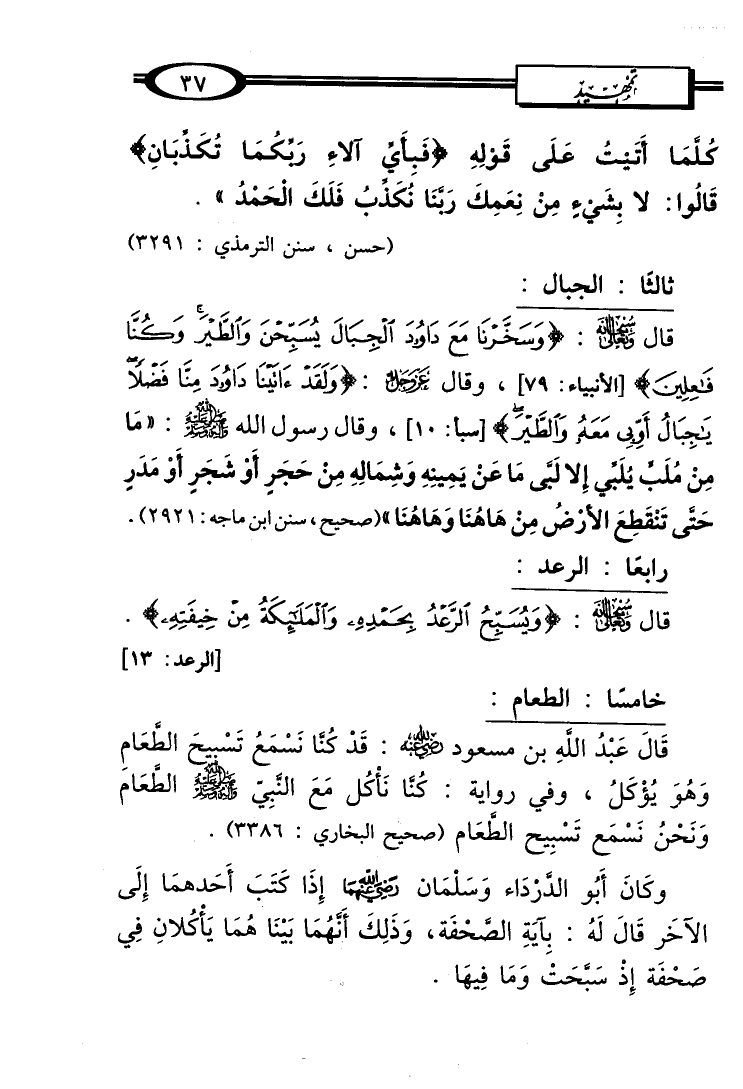 تمهيد
٣٧
كُلَّمَا أَتَيْتُ عَلَى قَوْلِهِ ﴿فَبِأَيِّ آلاءِ رَبِّكُمَا تُكَذِّبَانِ﴾
قَالُوا: لا بِشَيْءٍ مِنْ نِعَمِكَ رَبَّنَا نُكَذِّبُ فَلَكَ الْحَمْدُ » .
(حسن ، سنن الترمذي : ٣٢٩١)
ثالثًا : الجبال :
قال سُبْحَانَهُ وَتَعَالَى : ﴿وَسَخَّرْنَا مَعَ دَاوُۥدَ ٱلْجِبَالَ يُسَبِّحْنَ وَٱلطَّيْرَ ۚ وَكُنَّا
فَٰعِلِينَ﴾ [الأنبياء: ٧٩] ، وقال عَزَّوَجَلَّ :﴿وَلَقَدْ ءَاتَيْنَا دَاوُۥدَ مِنَّا فَضْلًا ۖ
يَٰجِبَالُ أَوِّبِى مَعَهُۥ وَٱلطَّيْرَ ۖ﴾ [سبأ: ١٠] ، وقال رسول الله ﷺ : «مَا
مِنْ مُلَبٍّ يُلَبِّي إِلا لَبَّى مَا عَنْ يَمِينِهِ وَشِمَالِهِ مِنْ حَجَرٍ أَوْ شَجَرٍ أَوْ مَدَرٍ
حَتَّى تَنْقَطِعَ الأَرْضُ مِنْ هَاهُنَا وَهَاهُنَا»(صحيح، سنن ابن ماجه: ٢٩٢١).
رابعًا : الرعد :
قال سُبْحَانَهُ وَتَعَالَى : ﴿وَيُسَبِّحُ ٱلرَّعْدُ بِحَمْدِهِۦ وَٱلْمَلَٰٓئِكَةُ مِنْ خِيفَتِهِۦ﴾ .
[الرعد: ١٣]
خامسًا : الطعام :
قَالَ عَبْدُ اللَّهِ بن مسعود رَضِيَ اللَّهُ عَنْهُ : قَدْ كُنَّا نَسْمَعُ تَسْبِيحَ الطَّعَام
وَهُوَ يُؤْكَلُ ، وفي رواية : كُنَّا نَأْكُل مَعَ النَّبِيّ ﷺ الطَّعَامَ
وَنَحْنُ نَسْمَع تَسْبِيح الطَّعَام (صحيح البخاري : ٣٣٨٦) .
وكَانَ أَبُو الدَّرْدَاء وَسَلْمَان رَضِيَ اللَّهُ عَنْهُمَا إِذَا كَتَبَ أَحَدهمَا إِلَى
الآخَر قَالَ لَهُ : بِآيَةِ الصَّحْفَة، وَذَلِكَ أَنَّهُمَا بَيْنَا هُمَا يَأْكُلان فِي
صَحْفَة إِذْ سَبَّحَتْ وَمَا فِيهَا .